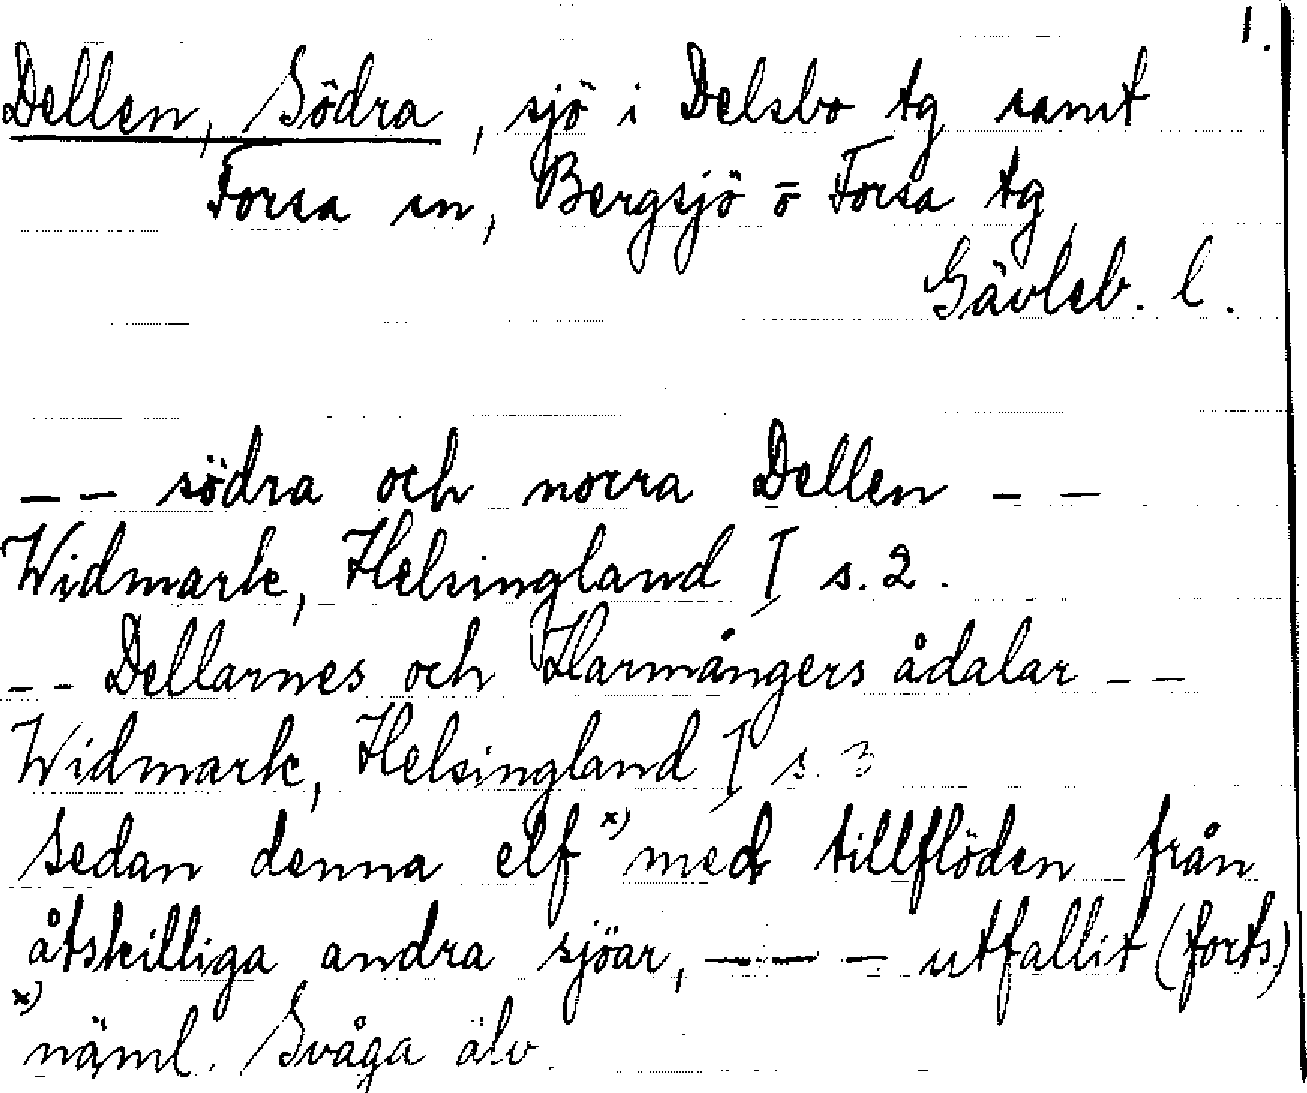 1.
Dellen, Södra, sjö i Delsbo tg samt
Forsa sn, Bergsjö o Forsa tg
Gävleb. l.
– – södra och norra Dellen – –
Widmark, Helsingland I s. 2.
– – Dellarnes och Harmångers ådalar – –
Widmark, Helsingland I s. 3
Sedan denna elf x) med tillflöden från
åtskilliga andra sjöar, – – – utfallit (forts)
x) näml. Svåga älv.